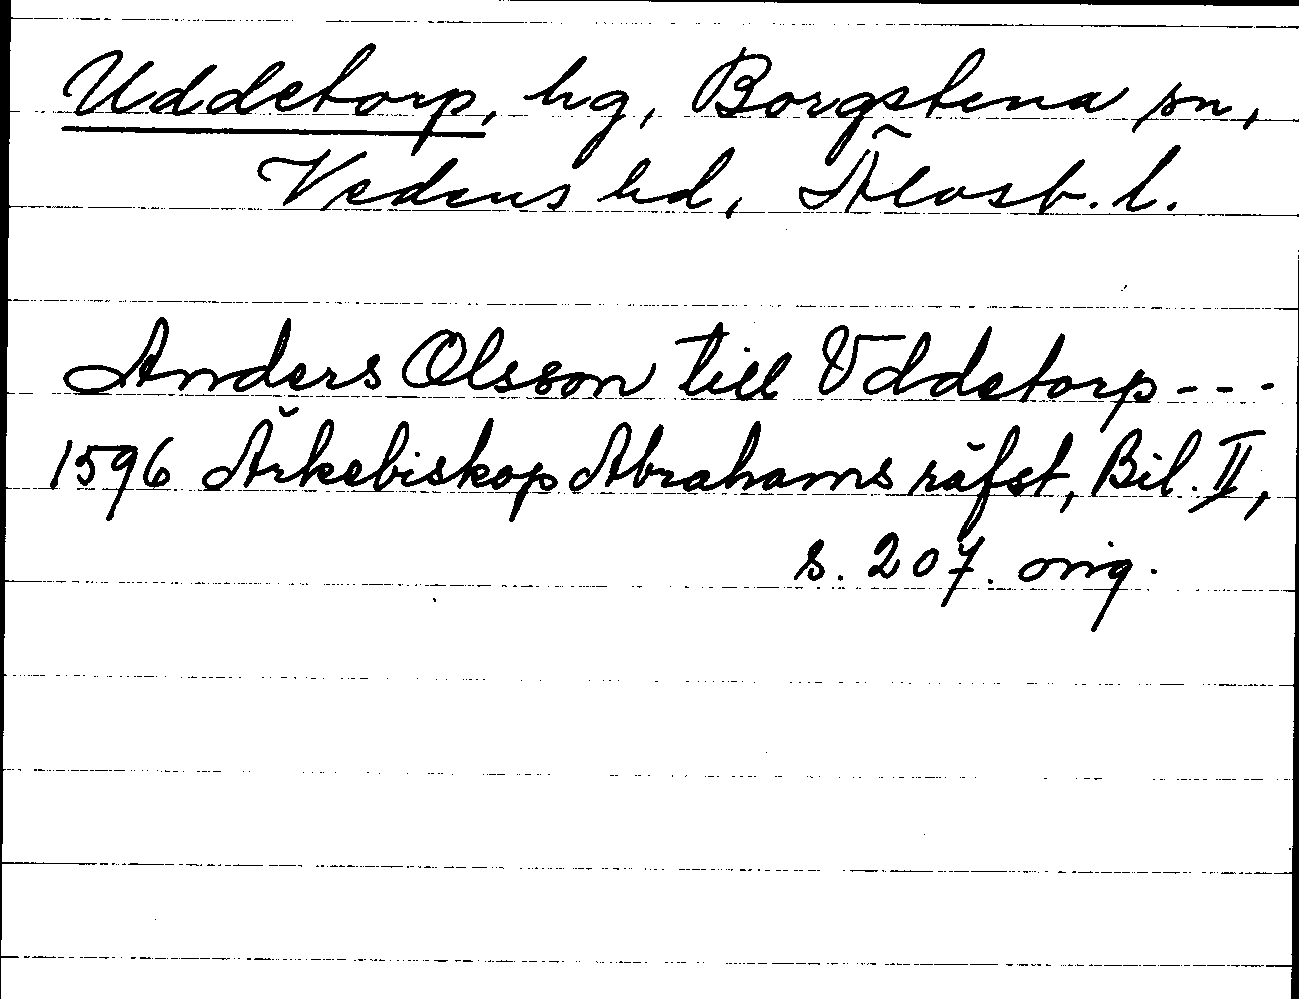 Uddetorp, hg, Borgstena sn,
Vedens hd, Älvsb. l.
Anders Olsson till Vddetorp - - -
1596 Ärkebiskop Abrahams räfst, Bil. II,
s. 207. orig.